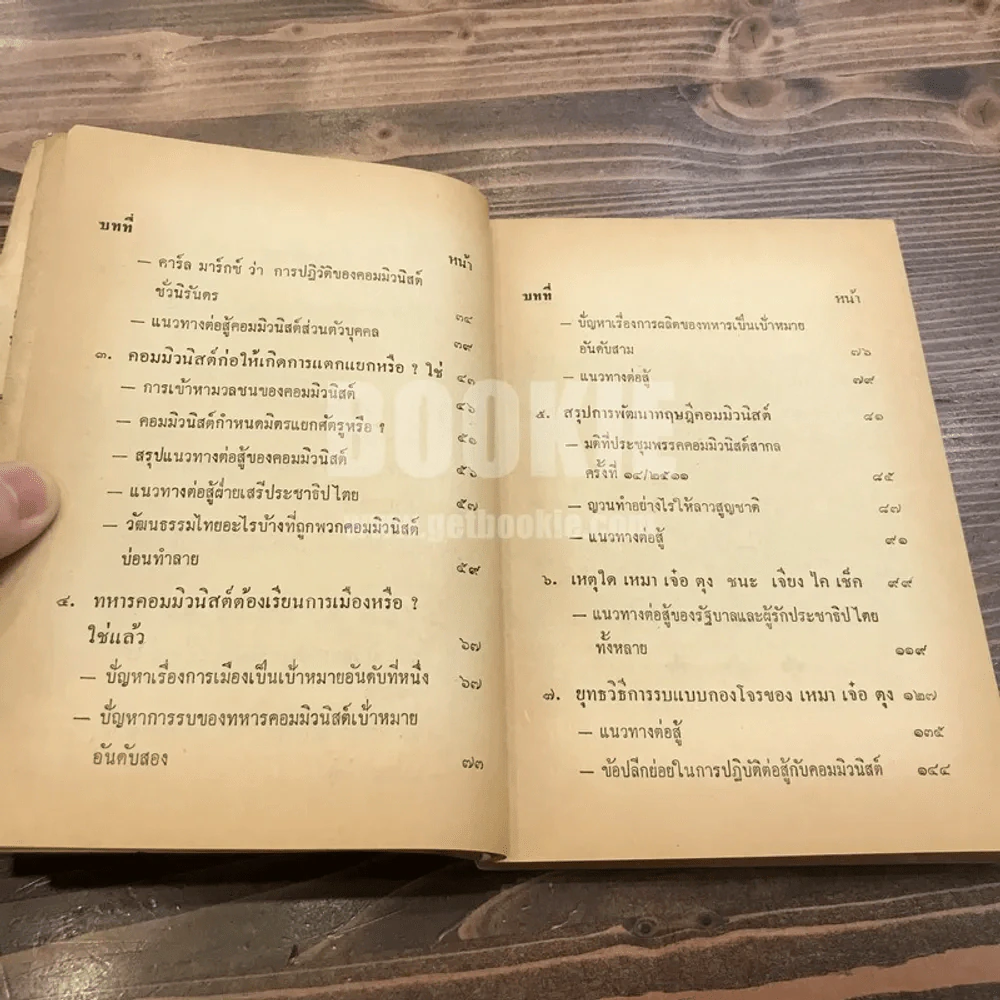 บทที่
หน้า
— คาร์ล มาร์กซ์ ว่า การปฏิวัติของคอมมิวนิสต์
ชั่วนิรันดร ๓๔
— แนวทางต่อสู้คอมมิวนิสต์ส่วนตัวบุคคล ๓๙
๓. คอมมิวนิสต์ก่อให้เกิดการแตกแยกหรือ ? ใช่ ๔๓
— การเข้าหามวลชนของคอมมิวนิสต์ ๔๖
— คอมมิวนิสต์กำหนดมิตรแยกศัตรูหรือ ? ๕๑
— สรุปแนวทางต่อสู้ของคอมมิวนิสต์ ๕๖
— แนวทางต่อสู้ฝ่ายเสรีประชาธิปไตย ๕๗
— วัฒนธรรมไทยอะไรบ้างที่ถูกพวกคอมมิวนิสต์
บ่อนทำลาย ๕๙
๔. ทหารคอมมิวนิสต์ต้องเรียนการเมืองหรือ ?
ใช่แล้ว ๖๗
— ปัญหาเรื่องการเมืองเป็นเป้าหมายอันดับที่หนึ่ง ๖๗
— ปัญหาการรบของทหารคอมมิวนิสต์เป้าหมาย
อันดับสอง ๗๓
บทที่ หน้า
— ปัญหาเรื่องการผลิตของทหารเป็นเป้าหมาย
อันดับสาม ๗๖
— แนวทางต่อสู้ ๗๙
๕. สรุปการพัฒนาทฤษฎีคอมมิวนิสต์ ๘๑
— มติที่ประชุมพรรคคอมมิวนิสต์สากล
ครั้งที่ ๑๔/๒๕๑๑ ๘๕
— ญวนทำอย่างไรให้ลาวสูญชาติ ๘๗
— แนวทางต่อสู้ ๙๑
๖. เหตุใด เหมา เจ๋อ ตุง ชนะ เจียง ไค เช็ค ๙๙
— แนวทางต่อสู้ของรัฐบาลและผู้รักประชาธิปไตย
ทั้งหลาย ๑๑๙
๗. ยุทธวิธีการรบแบบกองโจรของ เหมา เจ๋อ ตุง ๑๒๗
— แนวทางต่อสู้ ๑๓๕
— ข้อปลีกย่อยในการปฏิบัติต่อสู้กับคอมมิวนิสต์ ๑๔๔
BOOKIE
www.getbookie.com